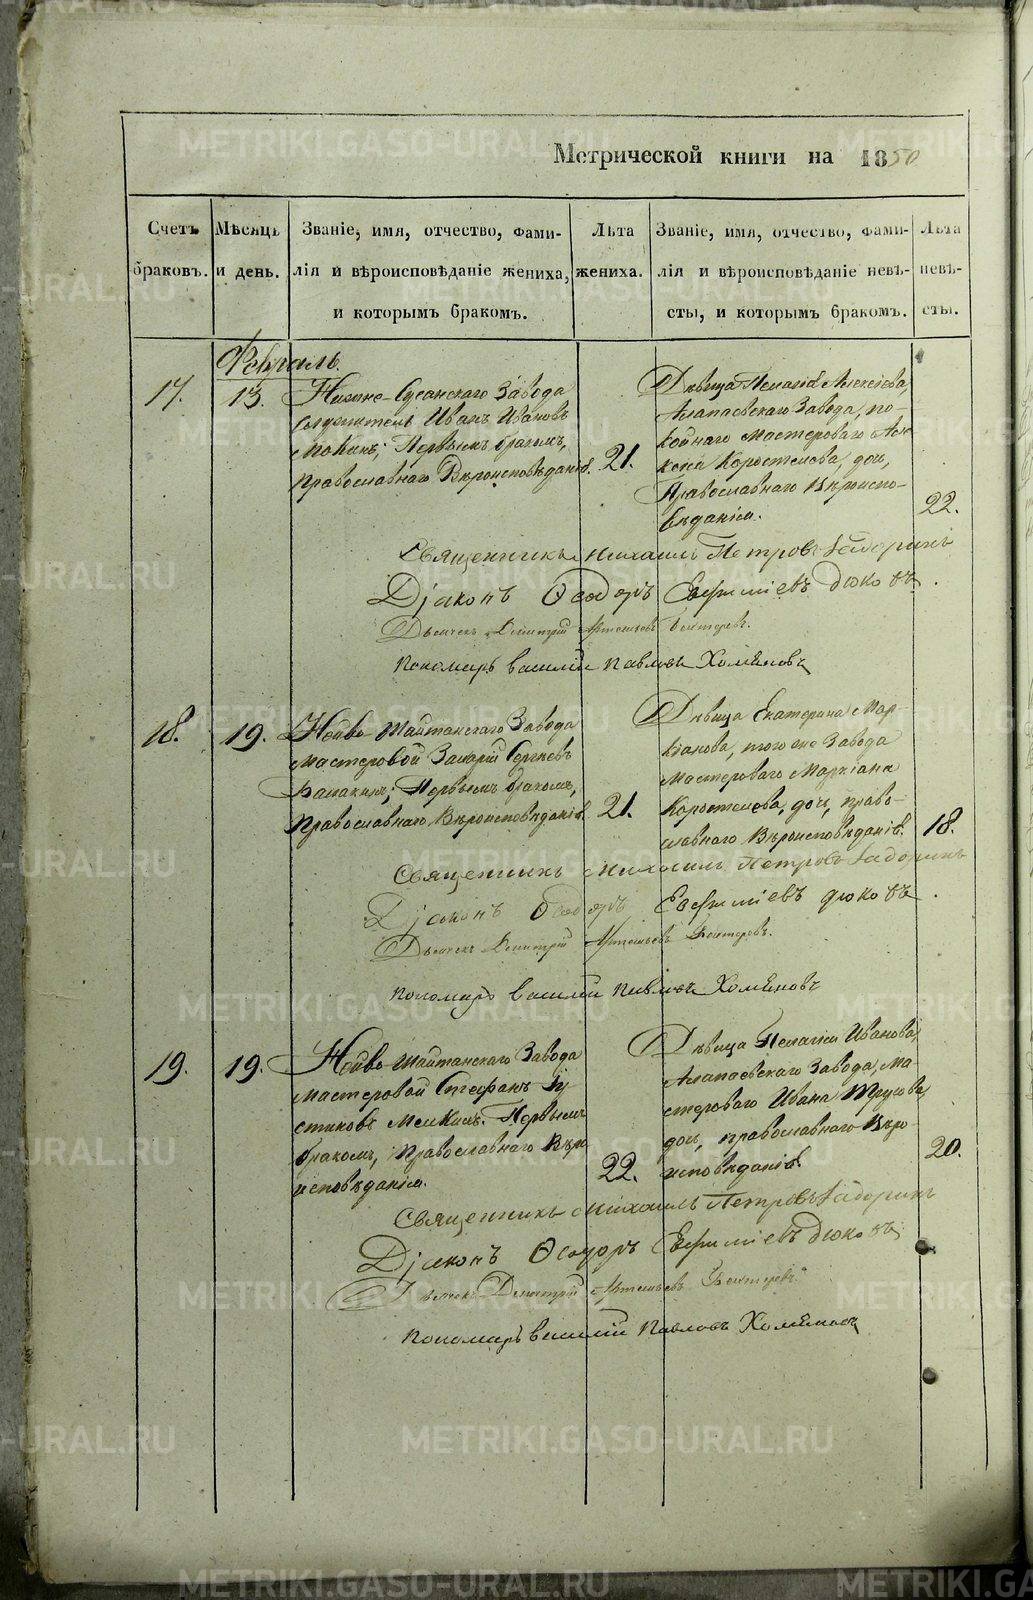 Метрической книги на 1850
Счетъ браковъ.
Мѣсяць и день.
Званіе, имя, отчество, фами-
лія и вѣроисповѣданіе жениха,
и которымъ бракомъ.
Лѣта жениха.
Званіе, имя, отчество, фами-
лія и вѣроисповѣданіе невѣ-
сты, и которымъ бракомъ.
Лѣта невѣ-
сты.
Февраль.
17.
13.
Нижне-Сусанскаго Завода
служитель Иванъ Ивановъ
Мокинъ; Первымъ бракомъ,
Православнаго Вѣроисповѣданія.
21.
Дѣвица Пелагія Алексіева,
Алапаевскаго Завода, по-
койнаго мастероваго Але
ксія Коростелева, дочь,
Православнаго Вѣроиспо-
вѣданія.
22.
Священникъ Михаилъ Петровъ
Діаконъ Ѳеодоръ Евфиміевъ Дюковъ.
Дьячекъ Димитрій Артемьевъ
Пономарь Василій Павловъ Хомяковъ
18.
19.
Нейво-Шайтанскаго Завода
мастеровой Захарій Сергіевъ
Балакинъ; Первымъ бракомъ,
Православнаго Вѣроисповѣданія.
21.
Дѣвица Екатерина Мар-
кіанова, того же Завода
мастероваго Маркіана
Коростелева, дочь, право-
славнаго Вѣроисповѣданія.
18.
Священникъ Михаилъ Петровъ
Діаконъ Ѳеодоръ Евфиміевъ Дюковъ.
Дьячекъ Димитрій Артемьевъ
Пономарь Василій Павловъ Хомяковъ
19.
19.
Нейво-Шайтанскаго Завода
мастеровой Стефанъ Іу
стиновъ Мелкинъ. Первымъ
бракомъ, Православнаго Вѣро
исповѣданія.
22.
Дѣвица Пелагія Иванова,
Алапаевскаго Завода, ма-
стероваго Ивана Трусова,
дочь, православнаго Вѣро-
исповѣданія.
20.
Священникъ Михаилъ Петровъ
Діаконъ Ѳеодоръ Евфиміевъ Дюковъ
Дьячекъ Димитрій Артемьевъ
Пономарь Василій Павловъ Хомяковъ
METRIKI.GASO-URAL.RU